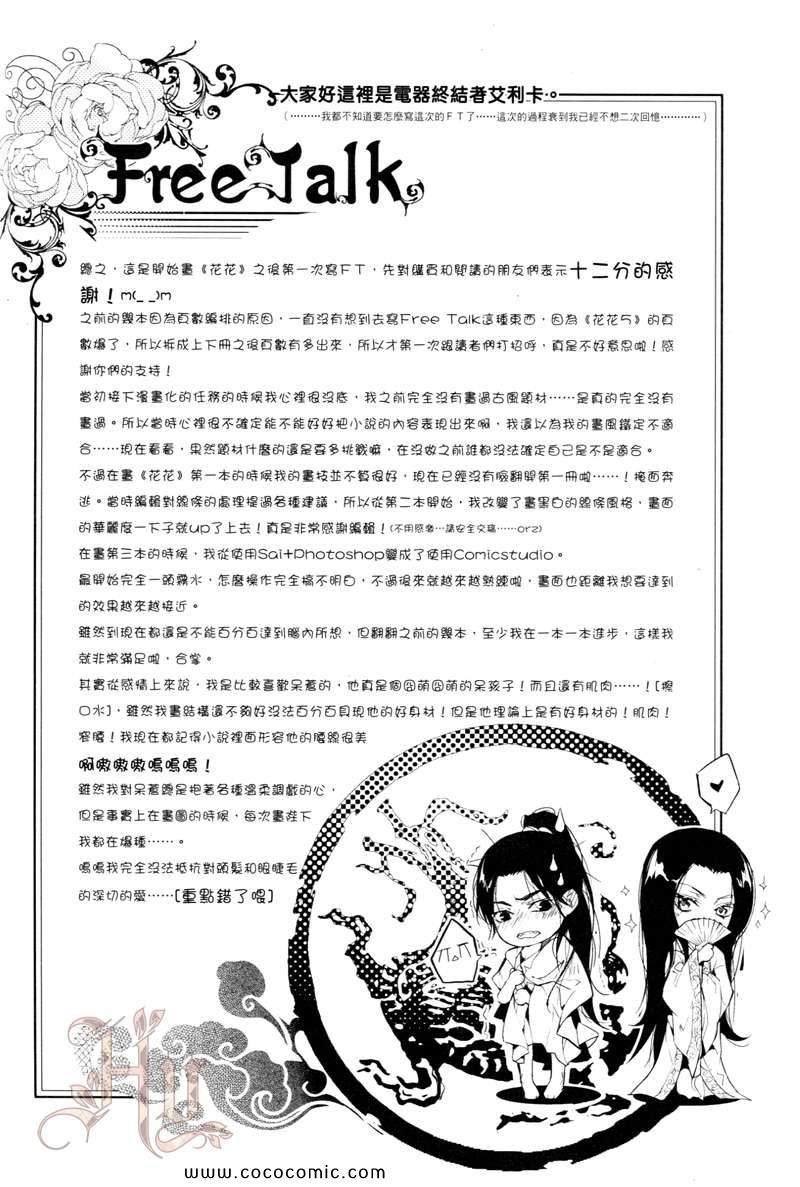 大家好這裡是電器終結者艾利卡。
(………我都不知道要怎麼寫這次的FT了……這次的過程衰到我已經不想二次回憶…………)
Free Talk
總之，這是開始畫《花花》之後第一次寫FT，先對購買和閱讀的朋友們表示十二分的感
謝！m(_ _)m
之前的幾本因為頁數編排的原因，一直沒有想到去寫Free Talk這種東西，因為《花花5》的頁
數爆了，所以拆成上下冊之後頁數有多出來，所以才第一次跟讀者們打招呼，真是不好意思啦！感
謝你們的支持！
當初接下漫畫化的任務的時候我心裡很沒底，我之前完全沒有畫過古風題材……是真的完全沒有
畫過。所以當時心裡很不確定能不能好好把小說的內容表現出來啊，我還以為我的畫風鐵定不適
合……現在看看，果然題材什麼的還是要多挑戰嘛，在沒做之前誰都沒法確定自己是不是適合。
不過在畫《花花》第一本的時候我的畫技並不算很好，現在已經沒有臉翻開第一冊啦……！掩面奔
逃。當時編輯對線條的處理提過各種建議，所以從第二本開始，我改變了畫黑白的線條風格，畫面
的華麗度一下子就up了上去！真是非常感謝編輯！(不用感謝…請安全交稿……orz)
在畫第三本的時候，我從使用Sai+Photoshop變成了使用Comicstudio。
最開始完全一頭霧水，怎麼操作完全搞不明白，不過後來就越來越熟練啦，畫面也距離我想要達到
的效果越來越接近。
雖然到現在都還是不能百分百達到腦內所想，但翻翻之前的幾本，至少我在一本一本進步，這樣我
就非常滿足啦，合掌。
其實從感情上來說，我是比較喜歡呆蒼的，他真是個囧萌囧萌的呆孩子！而且還有肌肉……！[擦
口水]，雖然我畫結構還不夠好沒法百分百具現他的好身材！但是他理論上是有好身材的！肌肉！
窄腰！我現在都記得小說裡面形容他的腰線很美
啊嗷嗷嗷嗚嗚嗚！
雖然我對呆蒼總是抱著各種溫柔調戲的心，
但是事實上在畫圖的時候，每次畫陛下
我都在爆種……。
嗚嗚我完全沒法抵抗對頭髮和眼睫毛
的深切的愛……[重點錯了喂]
www.cococomic.com